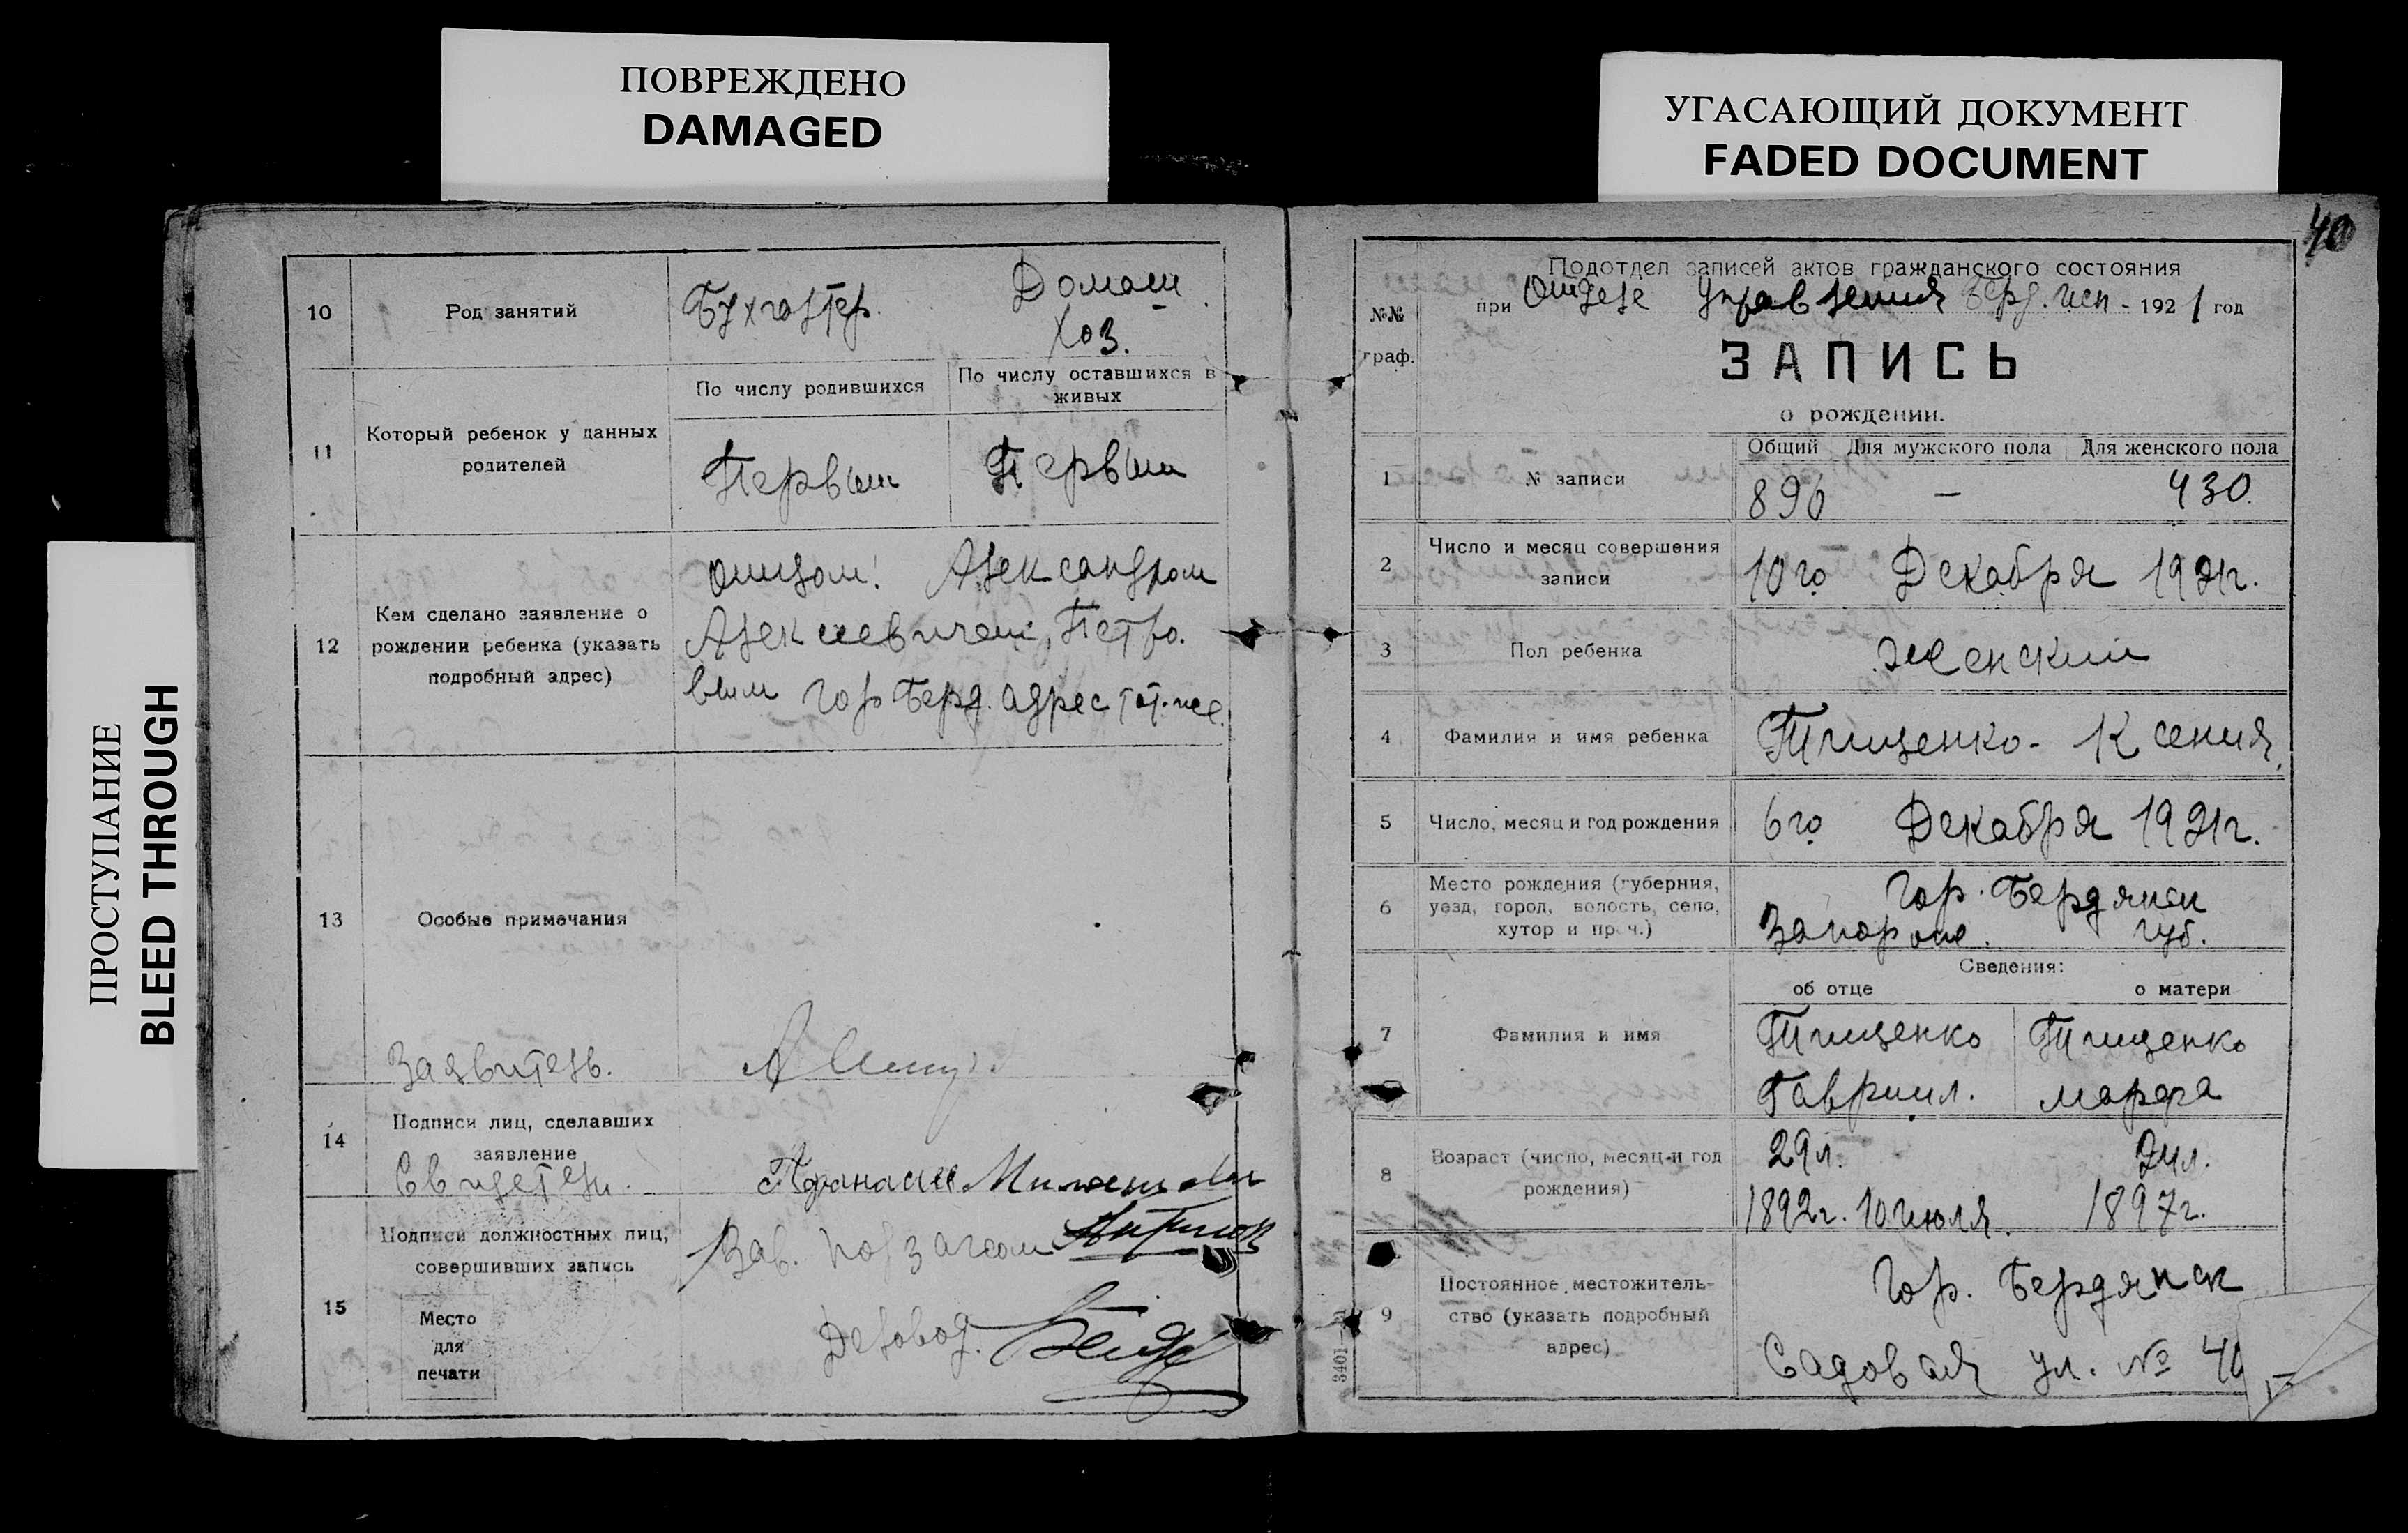 ПОВРЕЖДЕНО
DAMAGED
УГАСАЮЩИЙ ДОКУМЕНТ
FADED DOCUMENT
ПРОСТУПАНИЕ
BLEED THROUGH
10 Род занятий Бухгалтер. Домаш.
Хоз.
По числу родившихся По числу оставшихся в
живых
11 Который ребенок у данных
родителей
Первым Первым
12 Кем сделано заявление о
рождении ребенка (указать
подробный адрес)
отцом: Александром
Алексеевичем, Петро-
вым гор Берд. адрес тот-же.
13 Особые примечания
Заявитель.
14 Подписи лиц, сделавших
заявление
Свидетели.
Афанасий
15 Подписи должностных лиц,
совершивших запись
Зав. загсом
Место
для
печати
Деловод.
40
Подотдел записей актов гражданского состояния
№№
граф.
при Отделе Управления Берд. исп - 1921 год
ЗАПИСЬ
о рождении.
Общий Для мужского пола Для женского пола
1 № записи 896 — 430.
2 Число и месяц совершения
записи
10го Декабря 1921г.
3 Пол ребенка женский
4 Фамилия и имя ребенка Тищенко - Ксения.
5 Число, месяц и год рождения 6го Декабря 1921г.
6 Место рождения (губерния,
уезд, город, волость, село,
хутор и проч.)
Гор. Бердянск
Запорож. губ.
Сведения:
об отце о матери
7 Фамилия и имя
Тищенко Тищенко
Гавриил. Марфа
8 Возраст (число, месяц и год
рождения)
29л. 24л.
1892г. 10 июля. 1897г.
9 Постоянное местожитель-
ство (указать подробный
адрес)
Гор. Бердянск
Садовая ул. № 40
3401—21